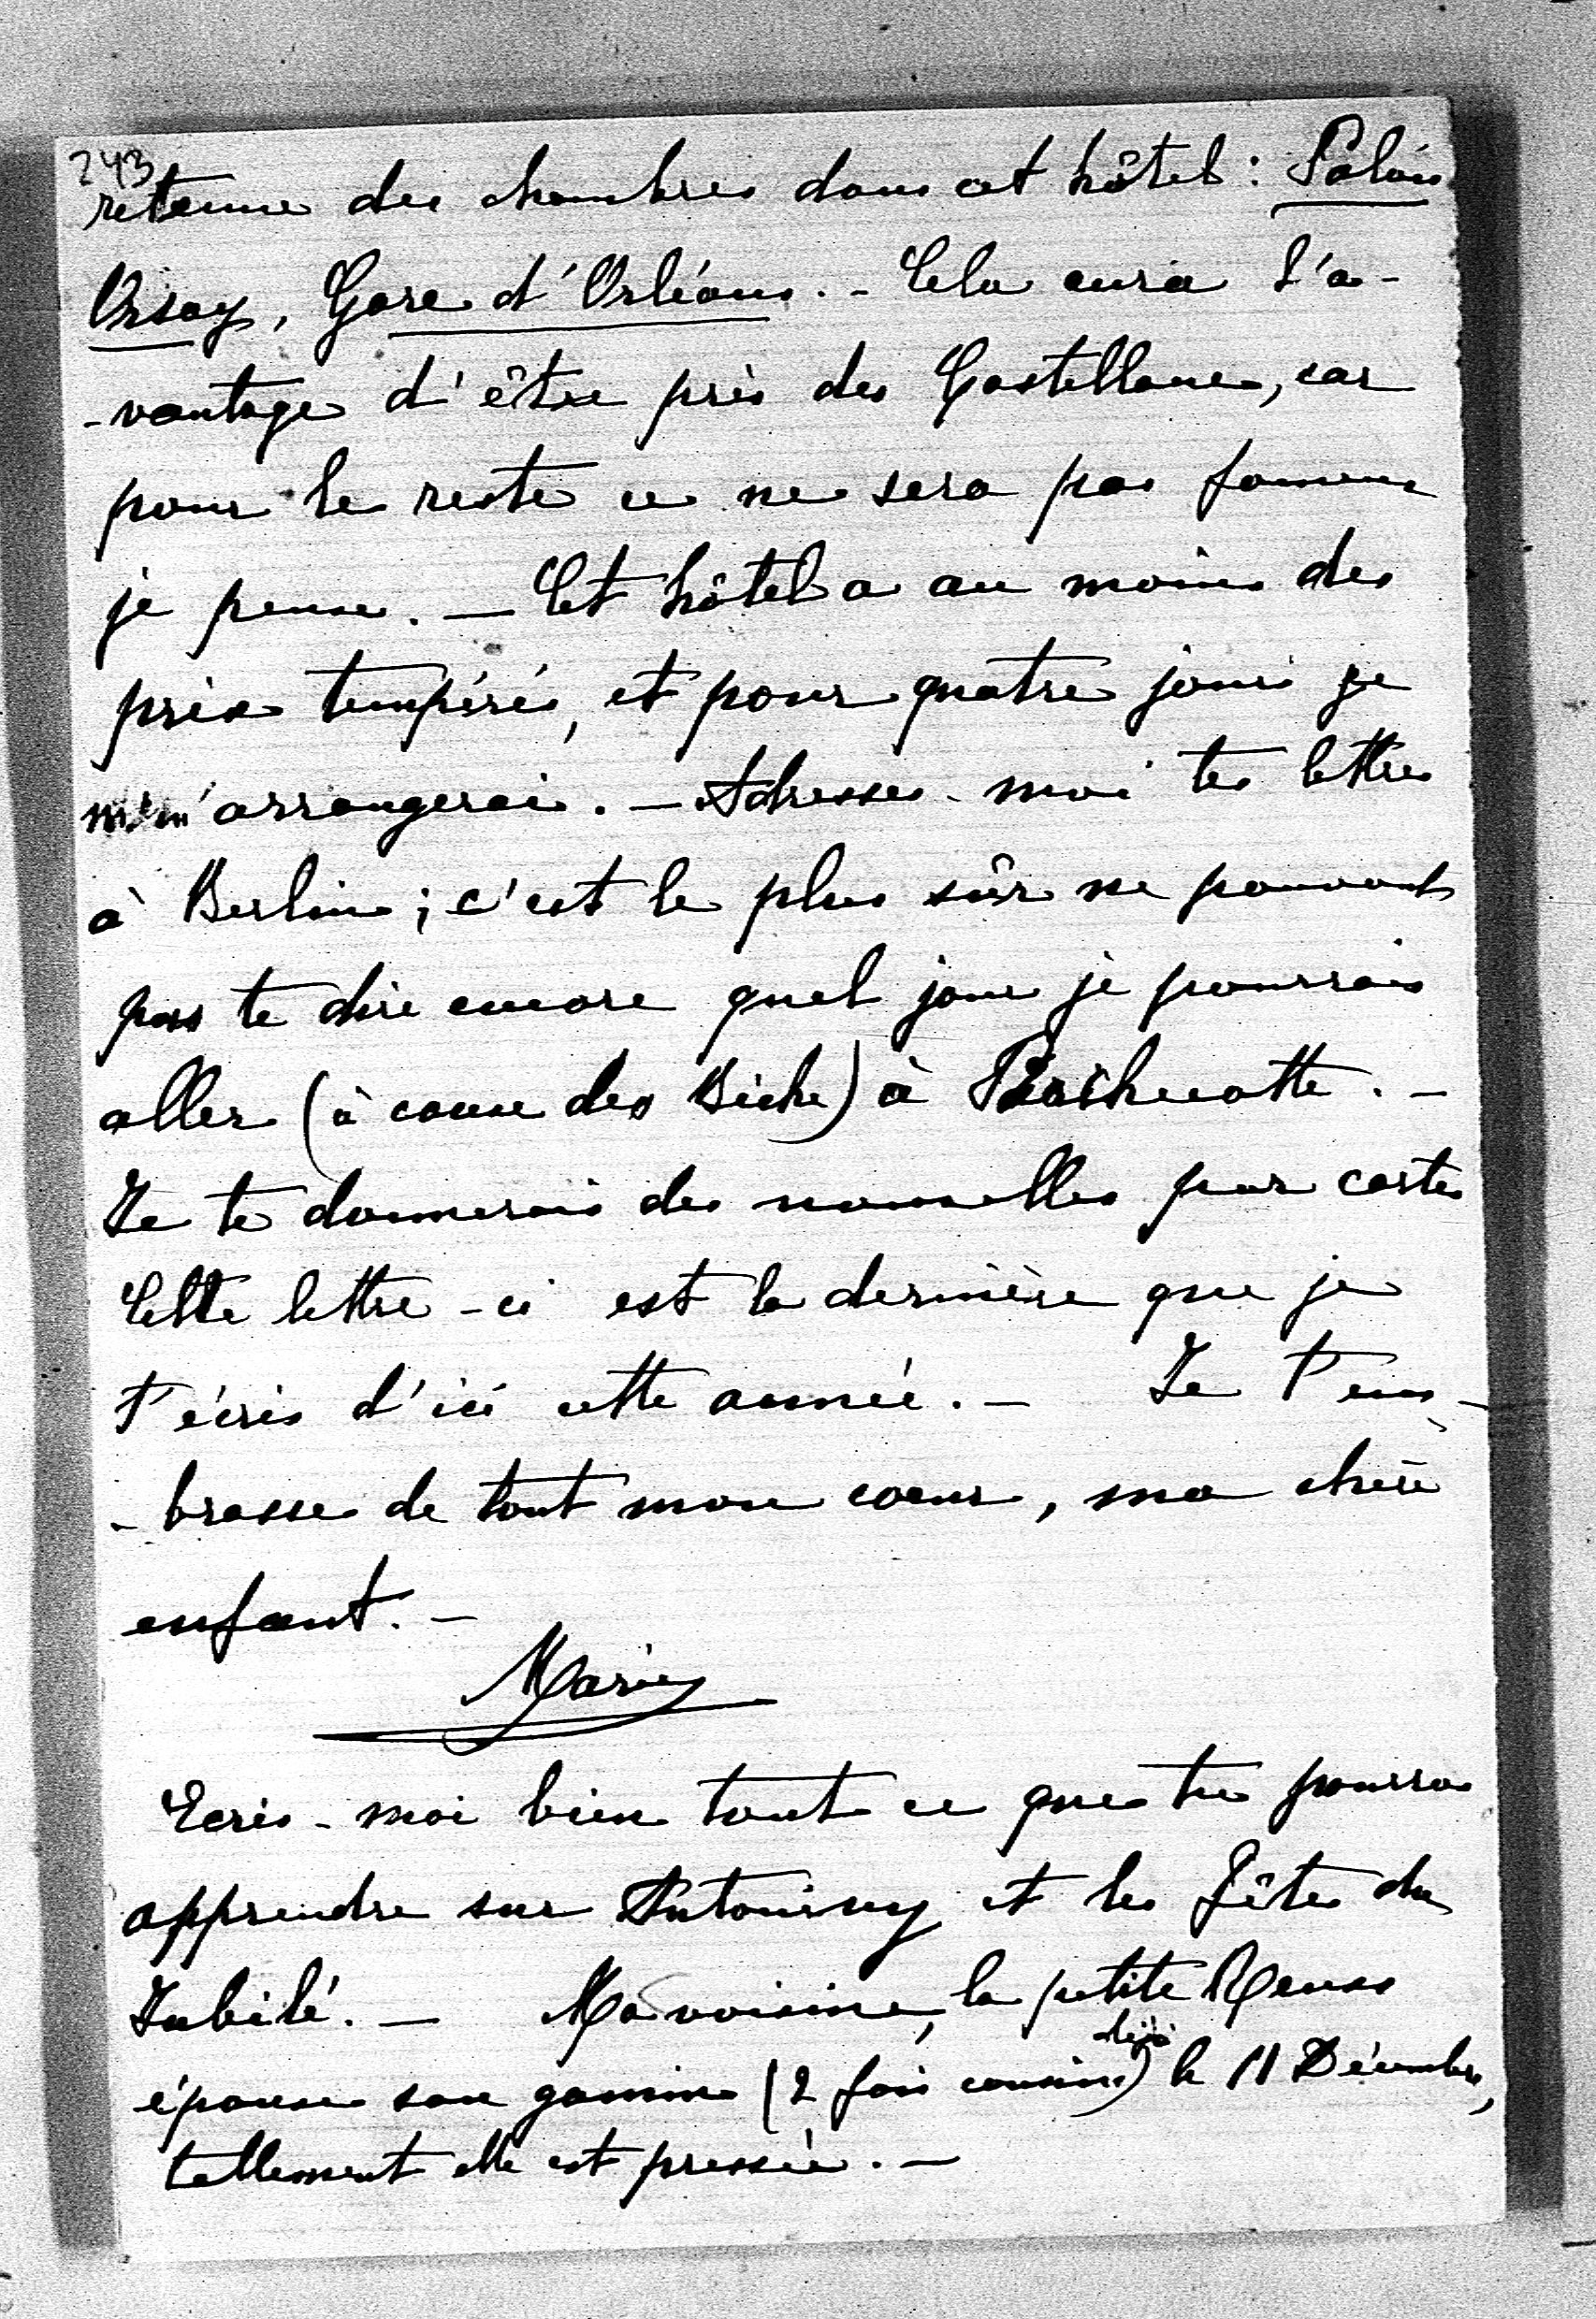 243
retenue des chambres dans cet hôtel : Palais
Orsay, Gare d'Orléans. - Cela aura l'a-
-vantage d'être près des Castellane, car
pour le reste ce ne sera pas fameux
je pense. — Cet hôtel a au moins des
prix tempérés, et pour quatre jours je
m'arrangerai. — Adresses-moi tes lettres
à Berlin ; c'est le plus sûr ne pouvant
pas te dire encore quel jour je pourrais
aller (à cause des Biche) à Rochecotte. -
Je te donnerais des nouvelles par cartes
Cette lettre-ci est la dernière que je
t'écris d'ici cette année. - Je t'em-
-brasse de tout mon coeur, ma chère
enfant. -
Marie
Ecris-moi bien tout ce que tu pourras
apprendre sur Antoniny et les fêtes du
Jubilé. — Ma voisine, la petite Reuss
épouse son gamin (2 fois cousins déjà) le 11 Décembre,
tellement elle est pressée. —